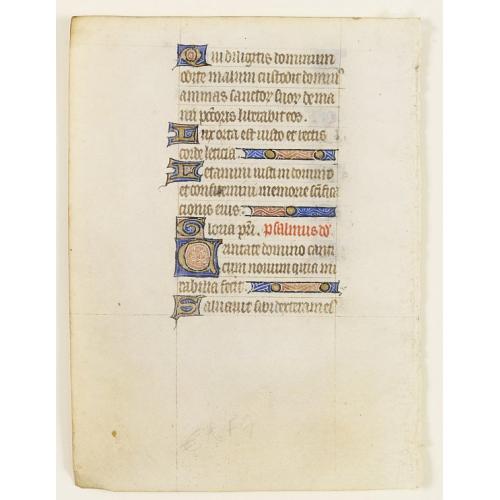 Qui diligitis dominum
odite malum custodit domin9
animas sanctor suor de ma
nu pctoris liberabit eos.
Lux orta est iusto et rectis
corde leticia.
Letamini iusti in domino
et confitemini memorie scifica
cionis eius.
Gloria pri. psalmus dd.
Cantate domino canti
cum nouum quia mi
rabilia fecit.
Saluauit sibi dextera ei9